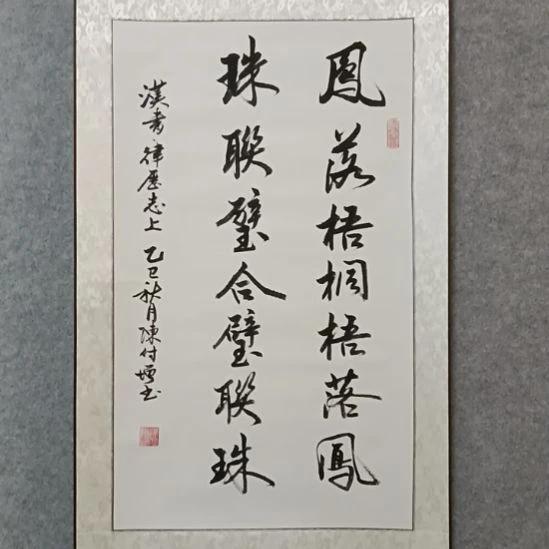 鳳落梧桐梧落鳳
珠聯璧合璧聯珠
漢書律歷志上 乙巳秋月陳付增書